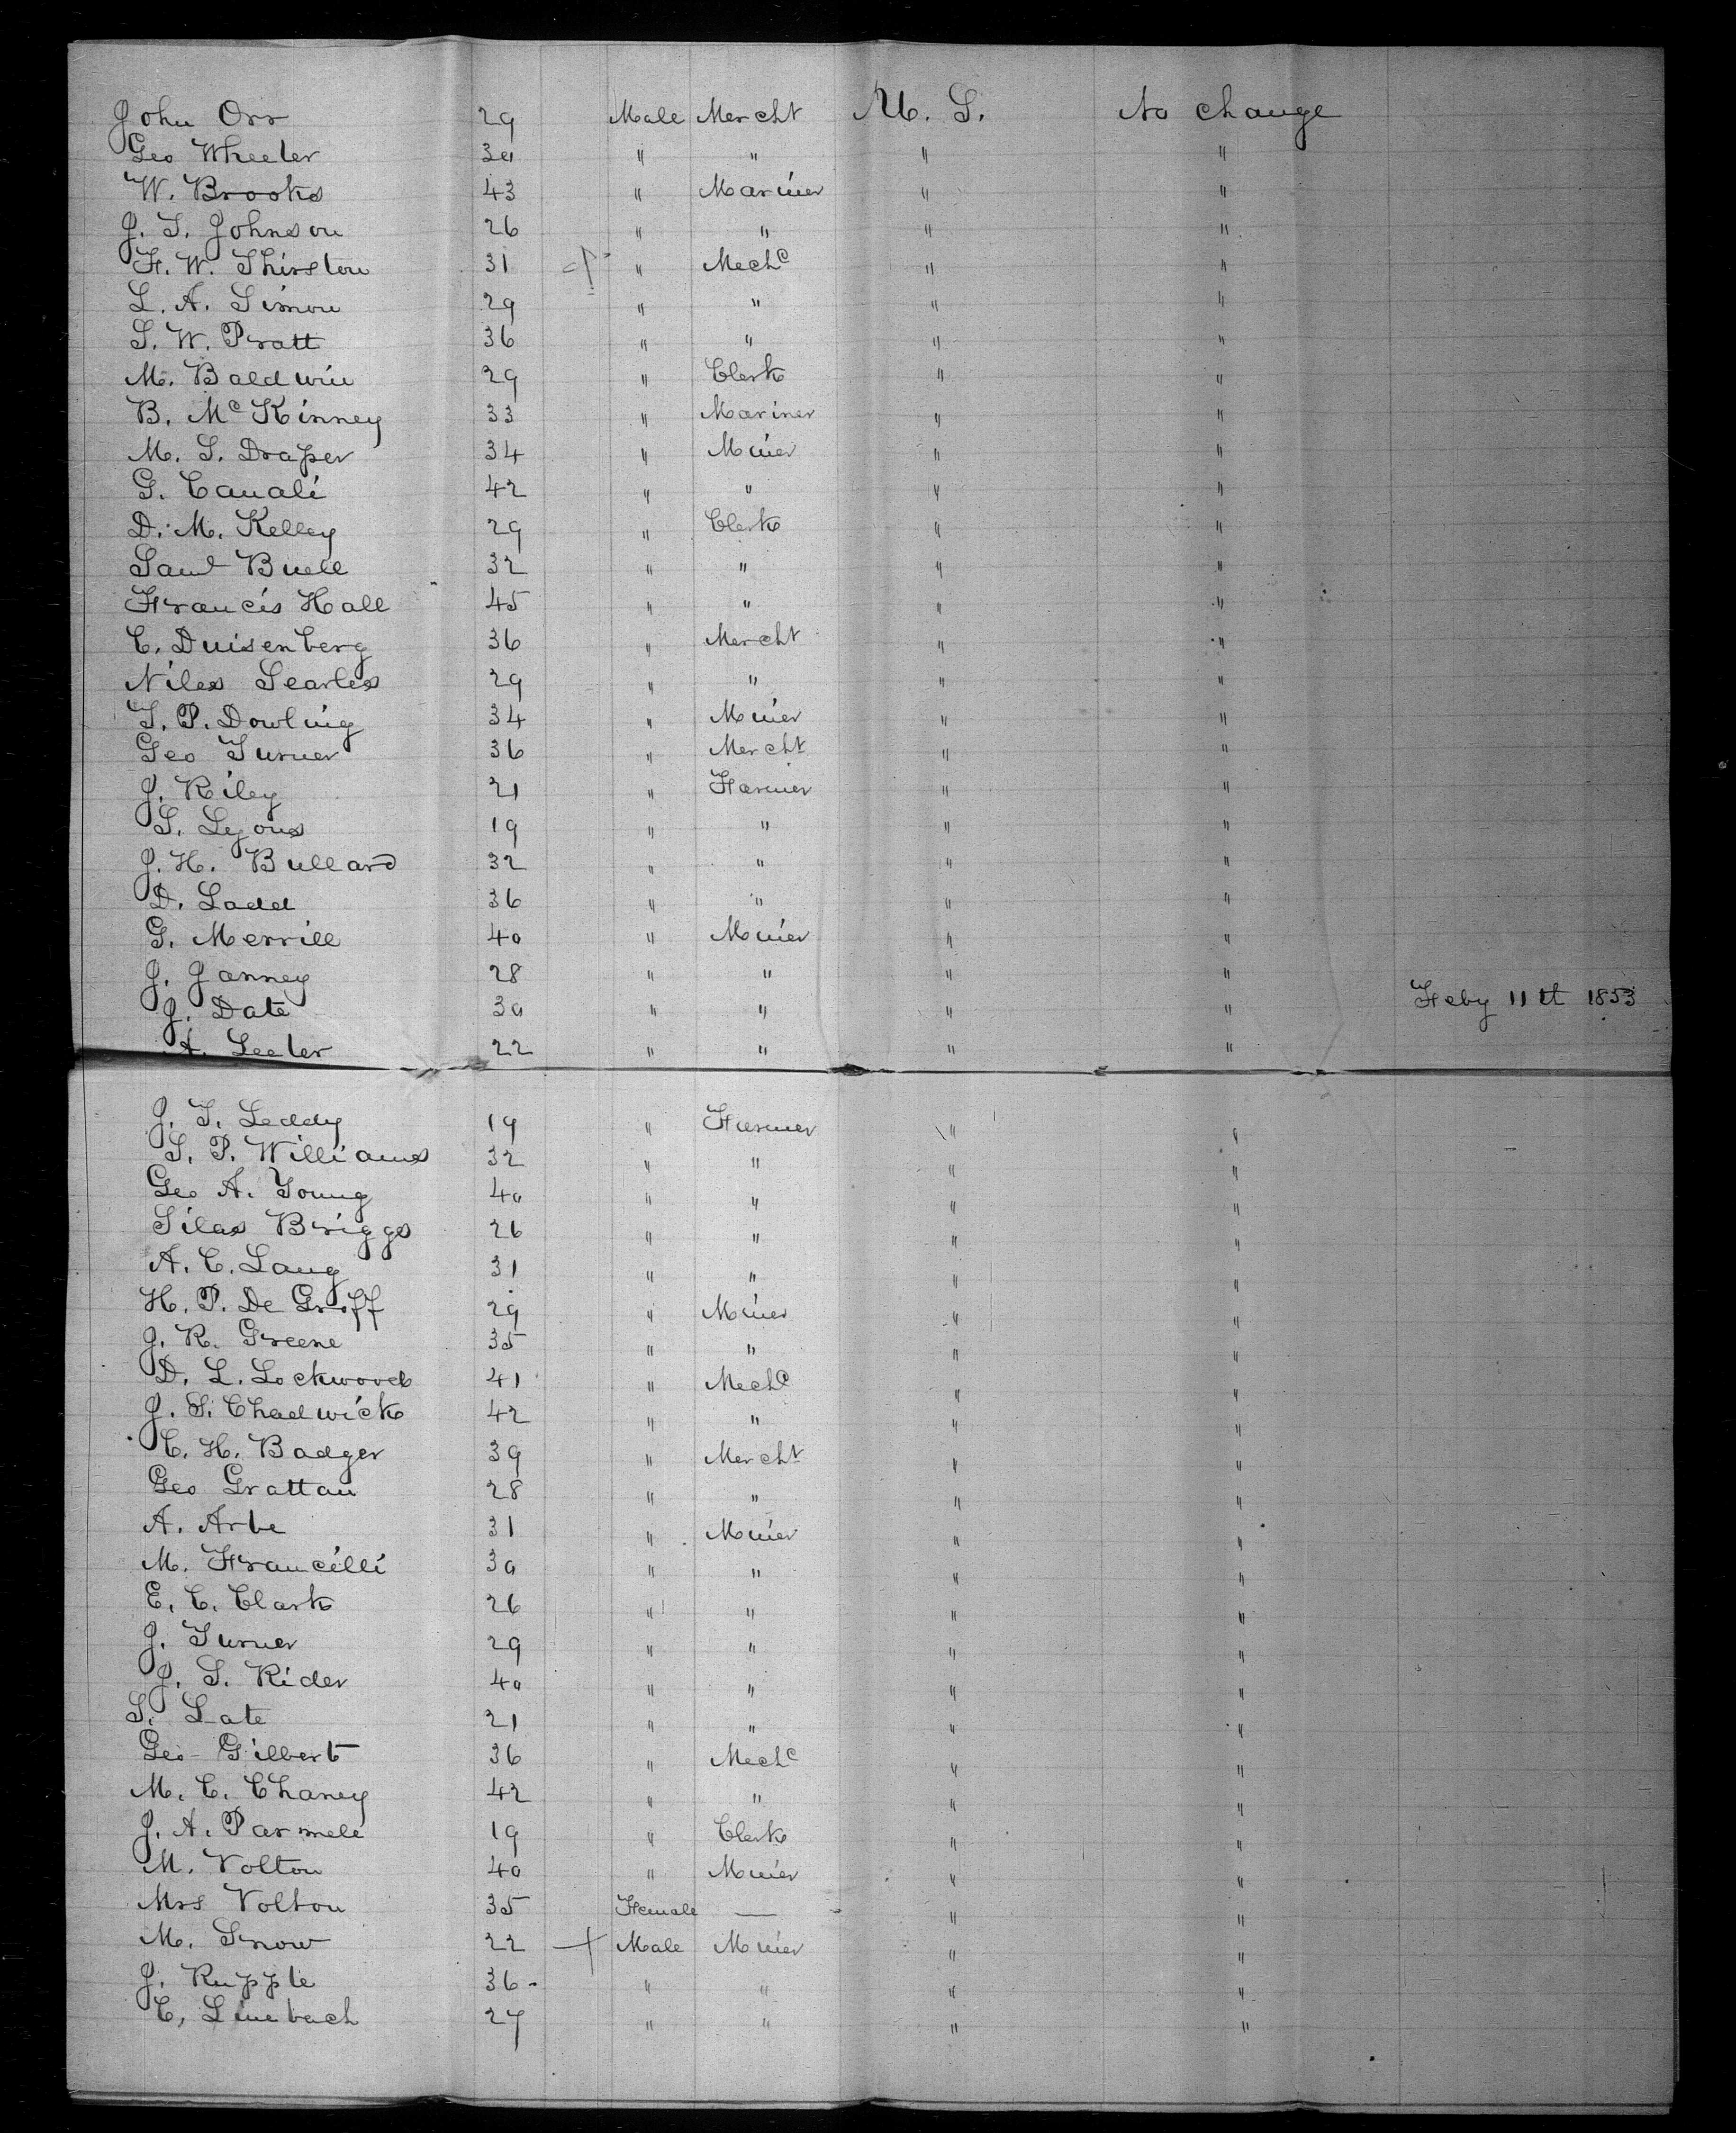 John Orr 29 Male Mercht U. S. No change
Geo Wheeler 30 " " " "
W. Brooks 43 " Mariner " "
J. T. Johnson 26 " " " "
F. W. Thirston 31 " Mechc " "
L. A. Simon 29 " " " "
S. W. Pratt 36 " " " "
M. Baldwin 29 " Clerk " "
B. McKinney 33 " Mariner " "
M. S. Draper 34 " Miner " "
G. Canali 42 " " " "
D. M. Kelley 29 " Clerk " "
Saml Buell 32 " " " "
Francis Hall 45 " " " "
C. Duisenberg 36 " Mercht " "
Niles Searles 29 " " " "
T. P. Dowling 34 " Miner " "
Geo Turner 36 " Mercht " "
J. Riley 21 " Farmer " "
S. Lyons 19 " " " "
J. H. Bullard 32 " " " "
D. Ladd 36 " " " "
G. Merrill 40 " Miner " "
J. Janney 28 " " " "
J. Date 30 " " " " Feby 11th 1853
A. Leeler 22 " " " "
J. T. Leddy 19 " Furmer " "
S. P. Williams 32 " " " "
Geo A. Young 40 " " " "
Silas Briggs 26 " " " "
A. C. Lang 31 " " " "
H. P. De Groff 29 " Miner " "
J. R. Greene 35 " " " "
D. L. Lockwood 41 " Mechc " "
J. S. Chadwick 42 " " " "
C. H. Badger 39 " Mercht " "
Geo Grattan 28 " " " "
A. Arbe 31 " Miner " "
M. Francilli 30 " " " "
E. C. Clark 26 " " " "
J. Turner 29 " " " "
J. S. Rider 40 " " " "
S. Late 21 " " " "
Geo Gilbert 36 " Mechc " "
M. C. Chaney 42 " " " "
J. A. Parmele 19 " Clerk " "
M. Volton 40 " Miner " "
Mrs Volton 35 Female — " "
M. Snow 22 Male Miner " "
J. Rupple 36 " " " "
C. Linebach 27 " " " "